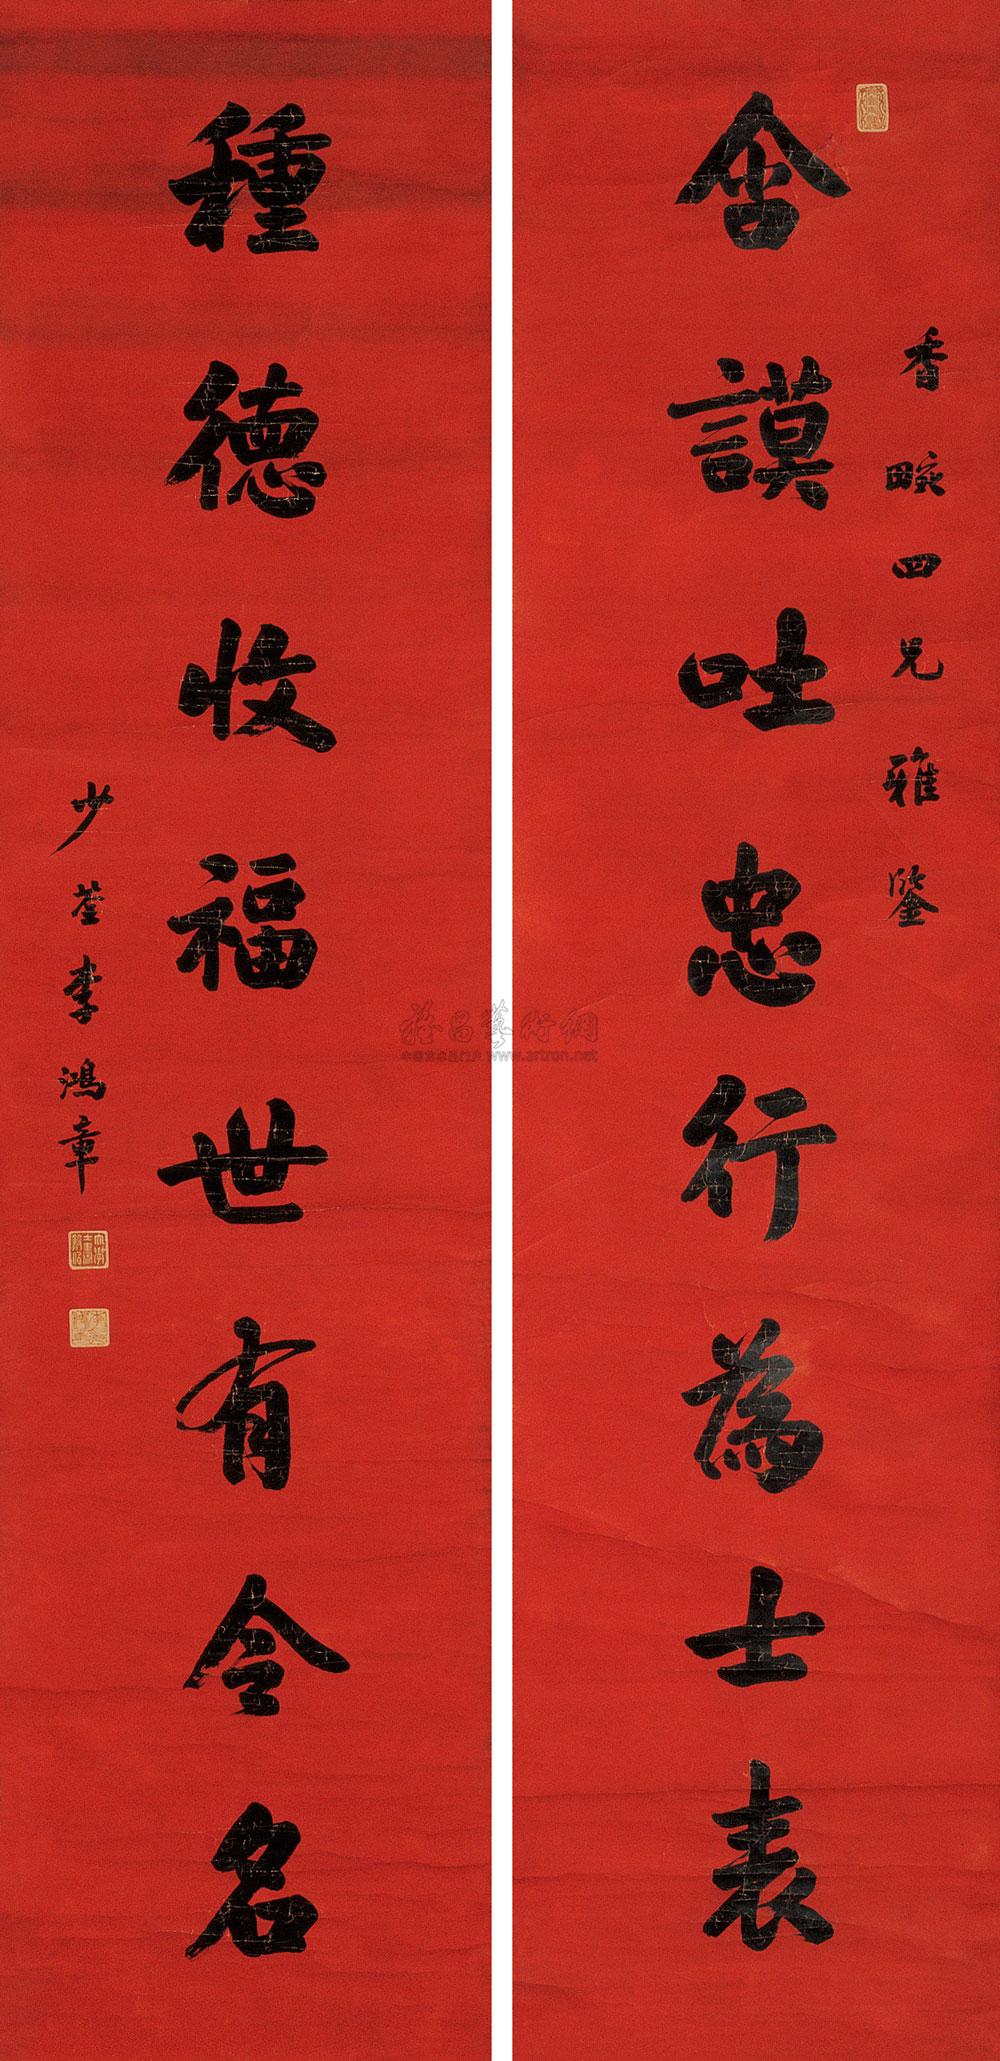 含謨吐忠行為士表
香畹四兄雅鑒
種德收福世有令名
少荃李鴻章
www.artron.net